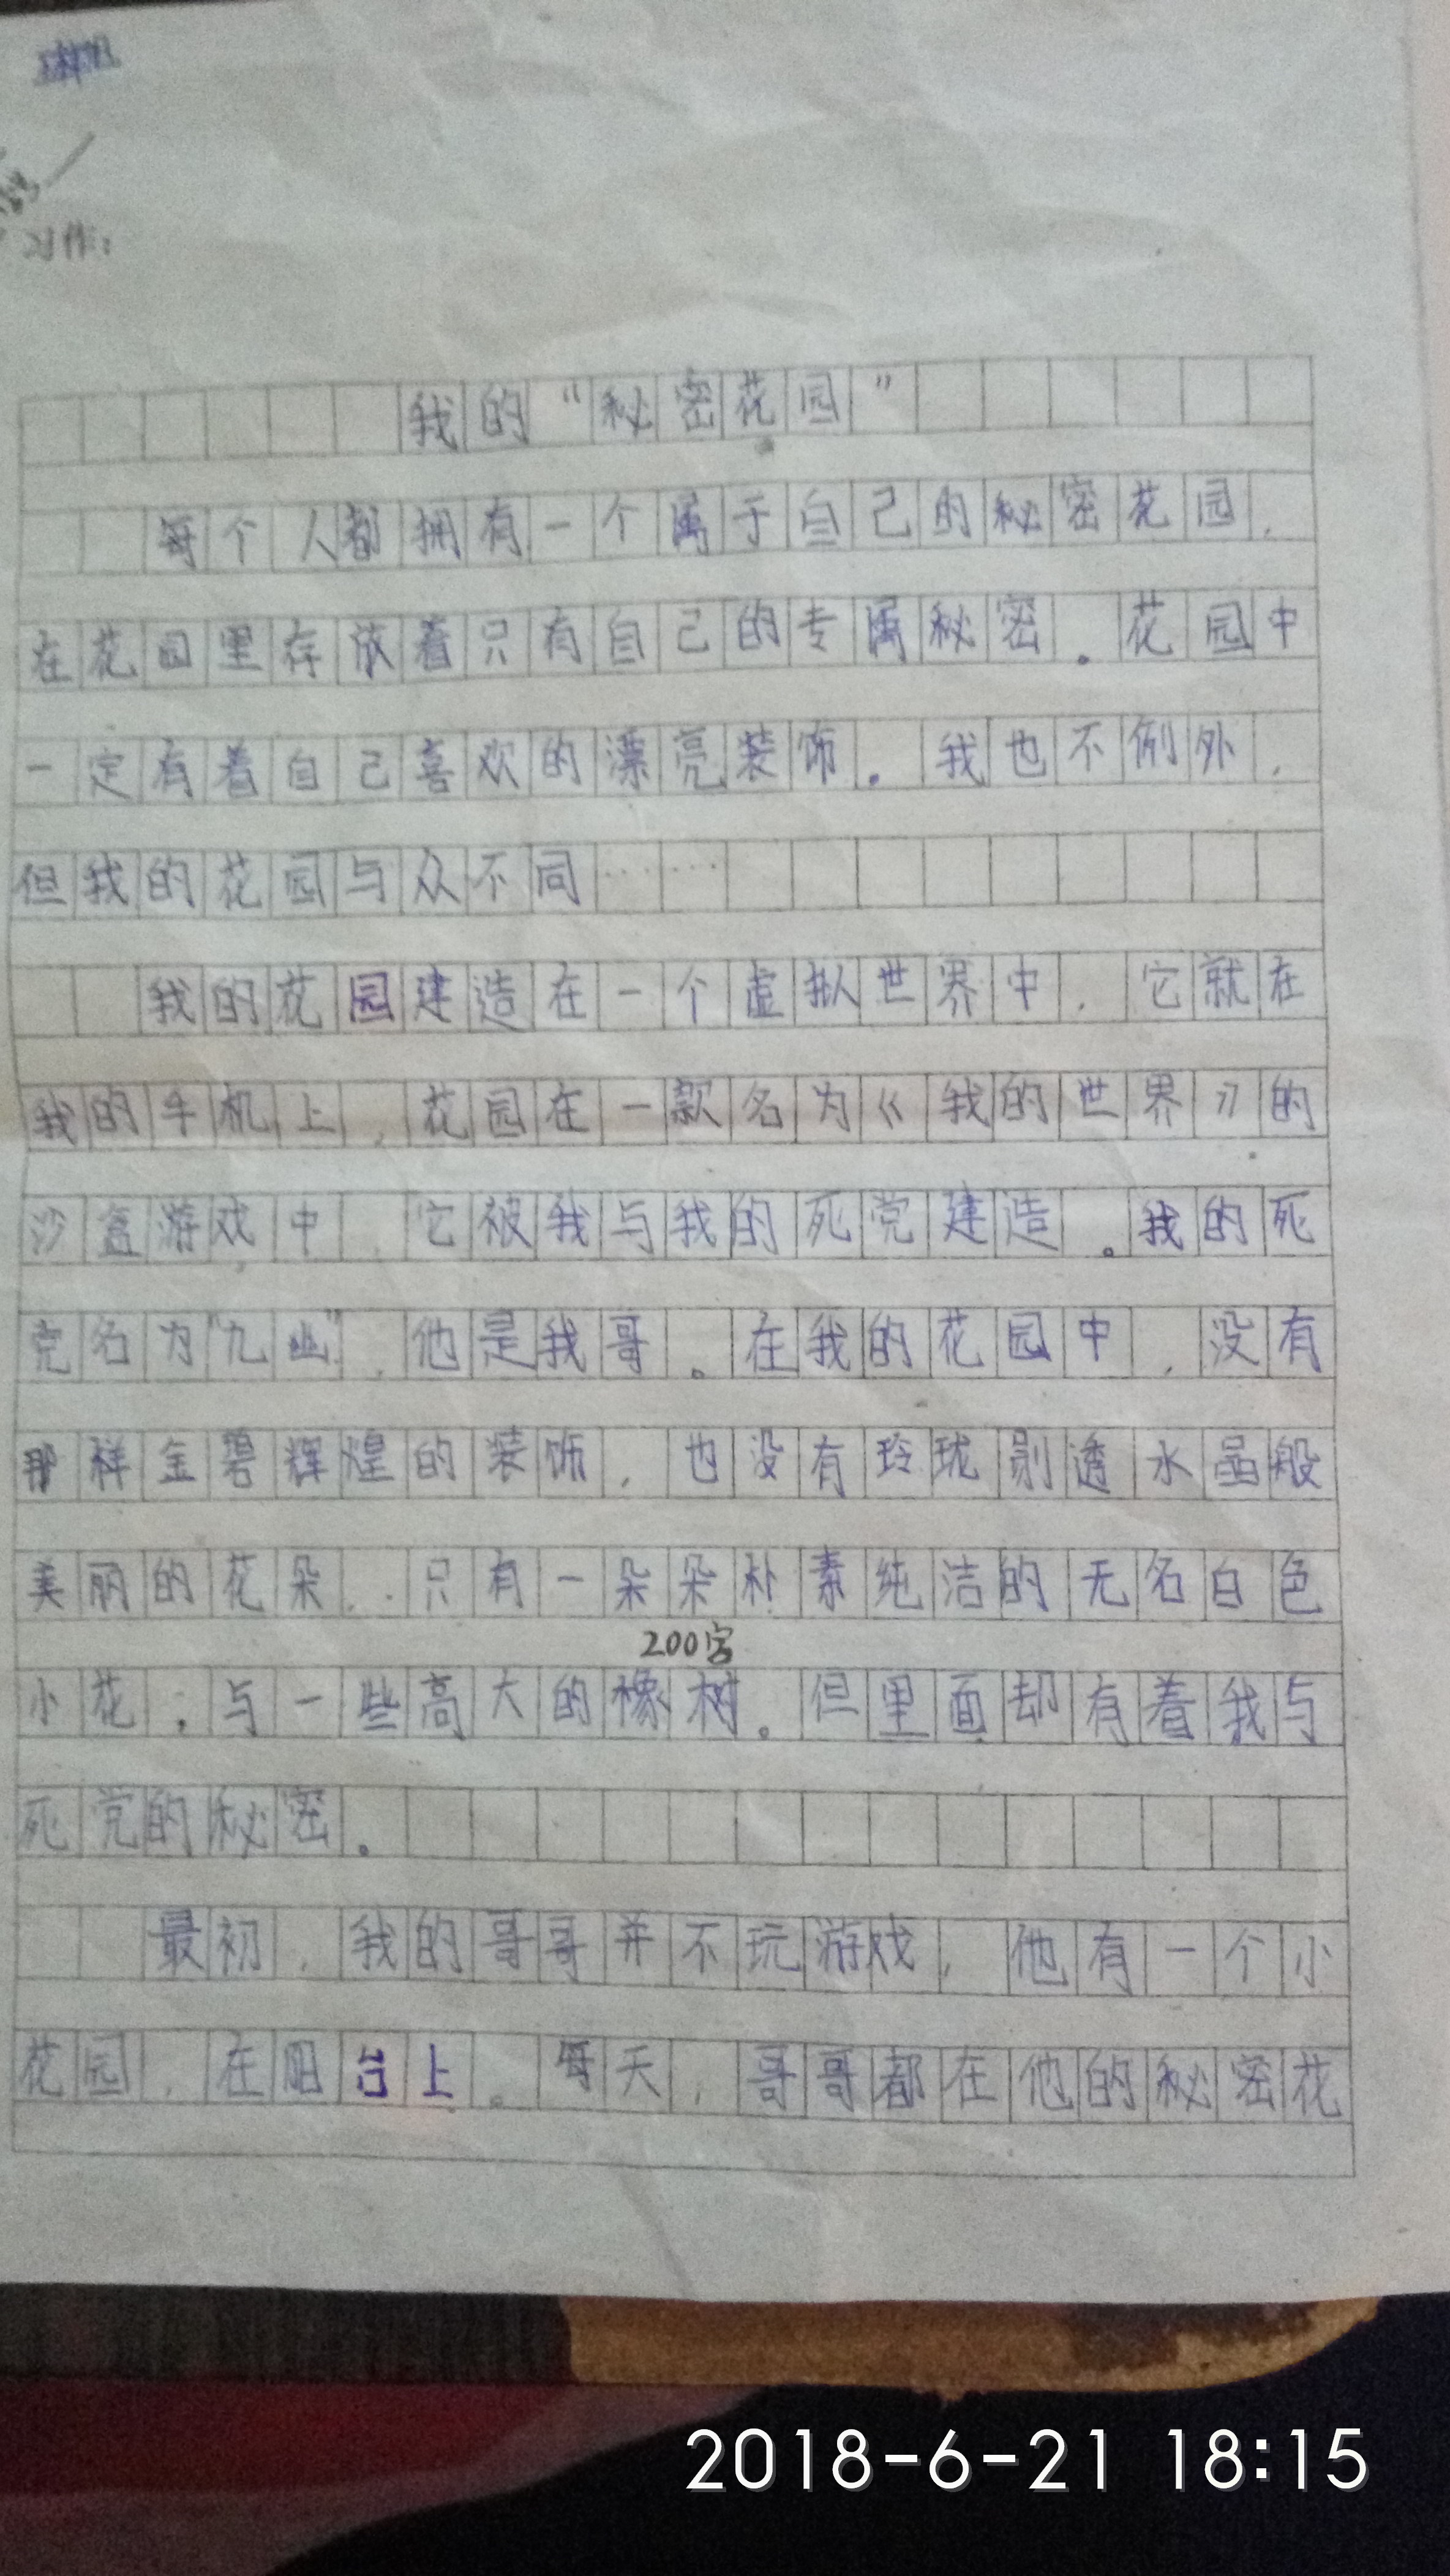 习作：
我的“秘密花园”
每个人都拥有一个属于自己的秘密花园，
在花园里存放着只有自己的专属秘密。花园中
一定有着自己喜欢的漂亮装饰。我也不例外，
但我的花园与众不同……
我的花园建造在一个虚拟世界中，它就在
我的手机上，花园在一款名为《我的世界》的
沙盒游戏中，它被我与我的死党建造。我的死
党名为“九幽”，他是我哥。在我的花园中，没有
那样金碧辉煌的装饰，也没有玲珑剔透水晶般
美丽的花朵，只有一朵朵朴素纯洁的无名白色
200字
小花，与一些高大的橡树。但里面却有着我与
死党的秘密。
最初，我的哥哥并不玩游戏，他有一个小
花园，在阳台上。每天，哥哥都在他的秘密花
2018-6-21 18:15